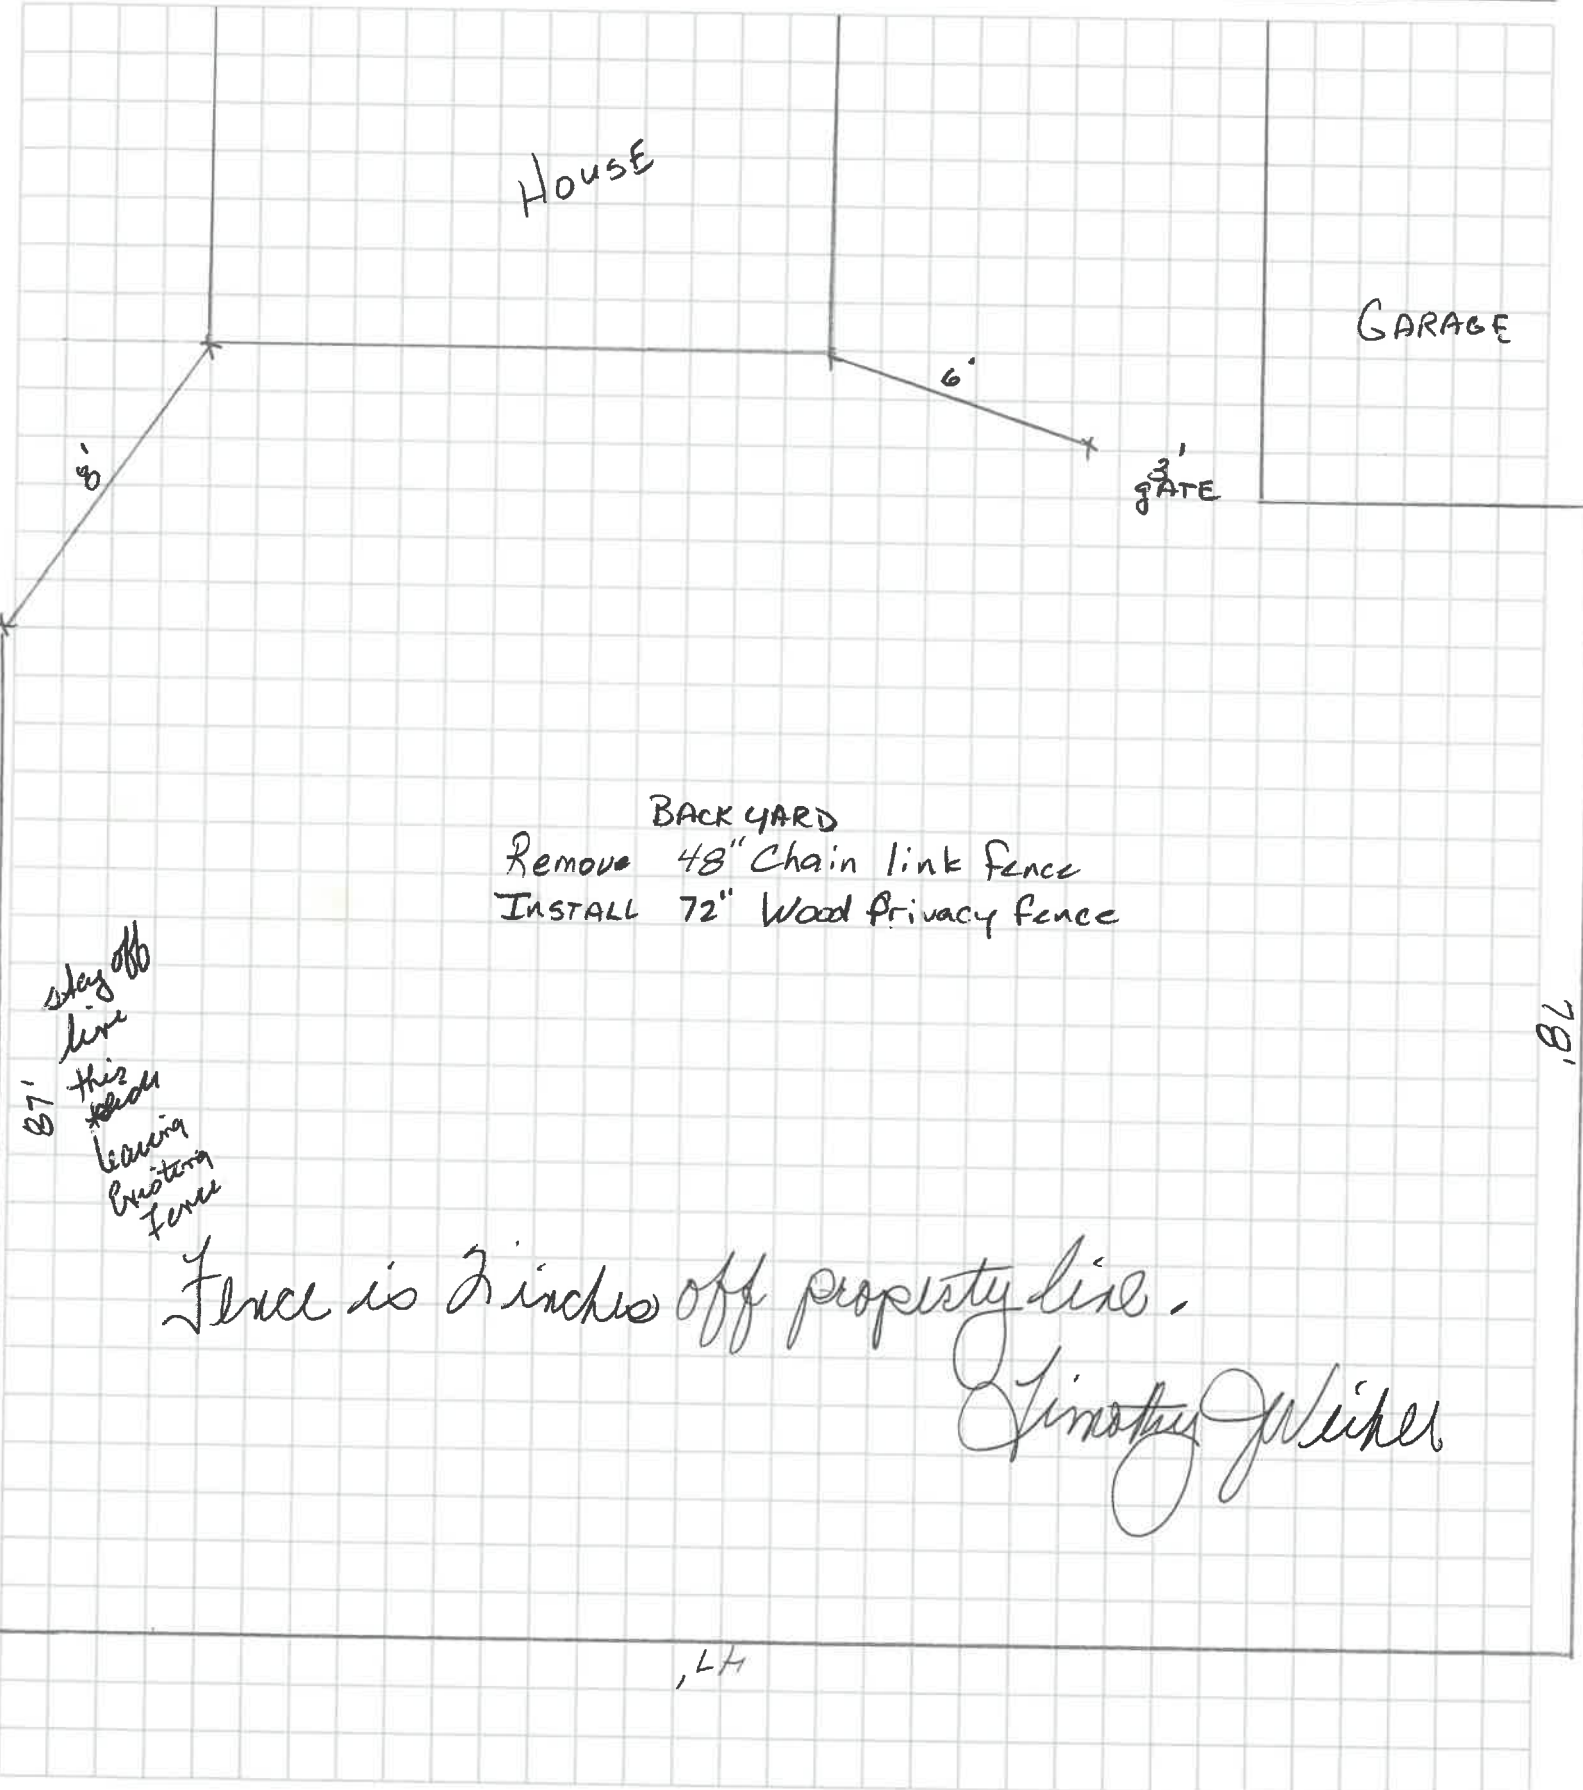 HOUSE
GARAGE
6'
8'
3'
gATE
BACK YARD
Remove 48" Chain link fence
INSTALL 72" Wood Privacy fence
stay off
line
this
leaving
Existing
Fence
87'
78'
Fence is 2 inches off property line.
Timothy J
47'